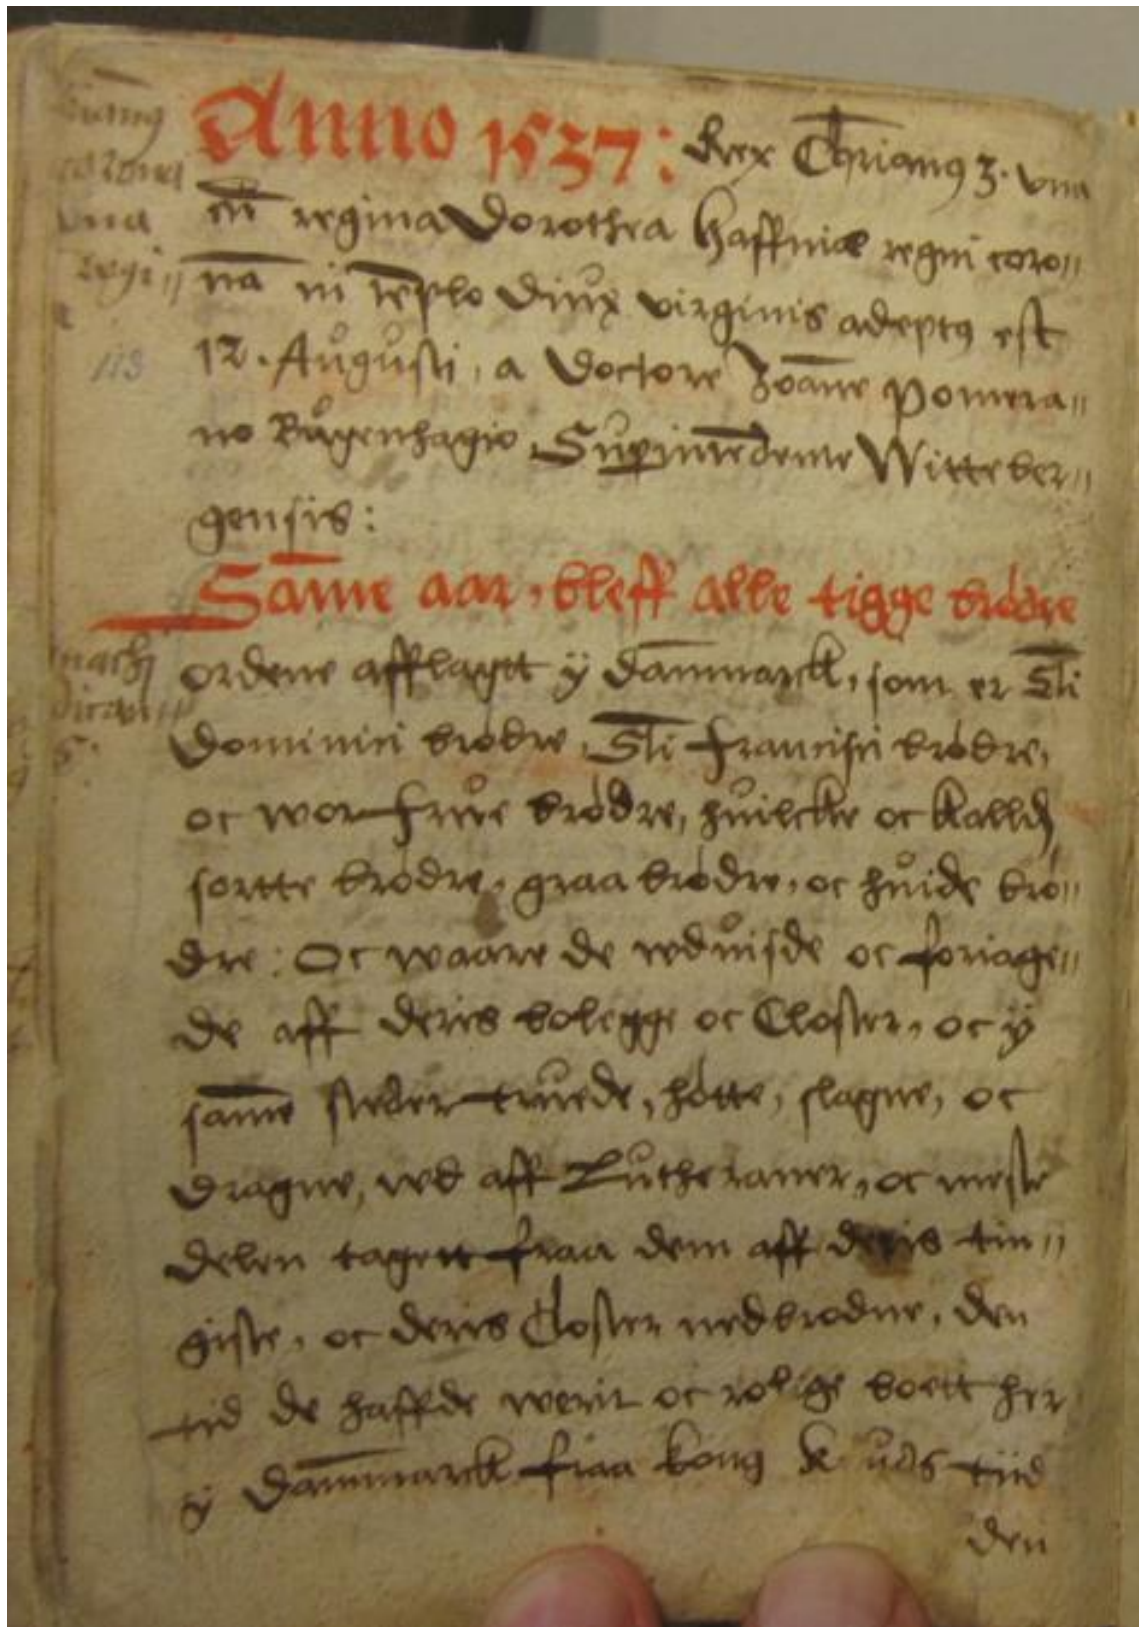 Anno 1537: Rex Chrianus 3. vna
cū regina Dorothea Haffniæ regni coro〃
nā in tēplo diuæ virginis adeptus est
12. Augusti, a Doctore Joāne Pomera〃
no Bugenhagio, Supintēdente Witteber〃
gensis:
Sāme aar, bleff alle tigge brødre
ordene afflagtt ÿ Danmarck, som er Sti
Dominici brødre, Sti Francisci brødre,
oc wor Frue brødre, huilcke oc kalld
sortte brødre, graa brødre, oc huide brø〃
dre: Oc waare de wduisde oc foriage〃
de aff deris bolegge oc Closter, oc ÿ
sāme steder truede, hótte, slagne, oc
dragne, wd aff Lutheraner, oc meste
delen tagett fraa dem aff deris tin〃
giste, oc deris Closter nedbrodne, den
tid de haffde werit oc rolige boett her
ÿ Dānmarck fraa kong K uds tiid
den
coronei
vna
regi〃
113
nachi
dican〃